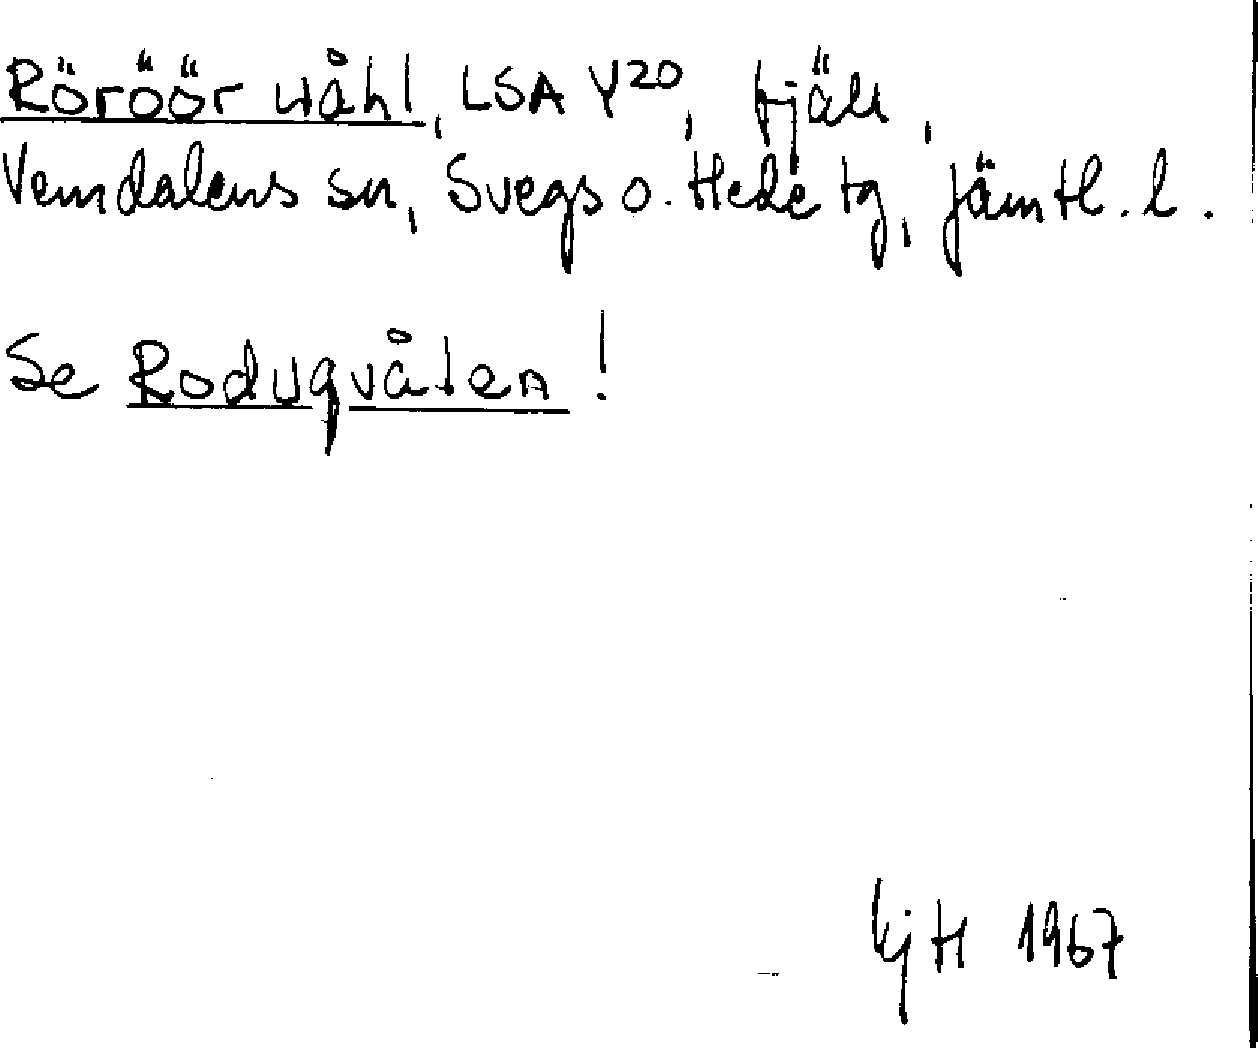 Röröör wåhl, LSA Y20, fjäll,
Vemdalens sn, Svegs o. Hede tg, Jämtl. l.
Se Roduqvålen!
KjH 1967